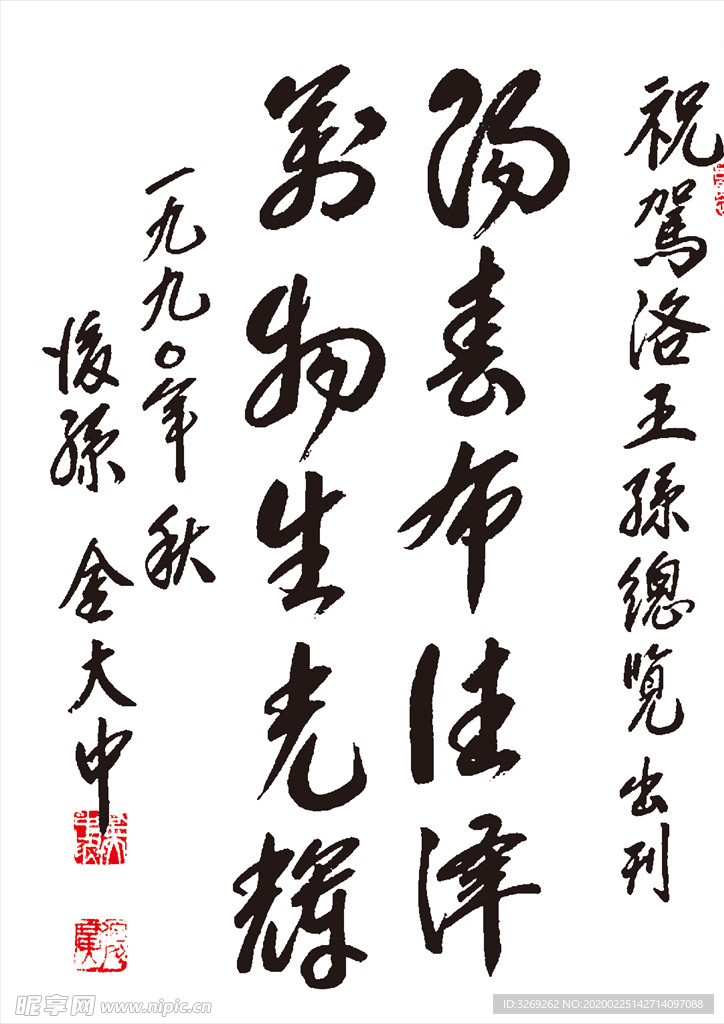 祝駕洛王孫總覽出刊
陽春布德澤
萬物生光輝
一九九〇年 秋
後孫 金大中
昵享网 www.nipic.cn
ID:3269262 NO:20200225142714097088